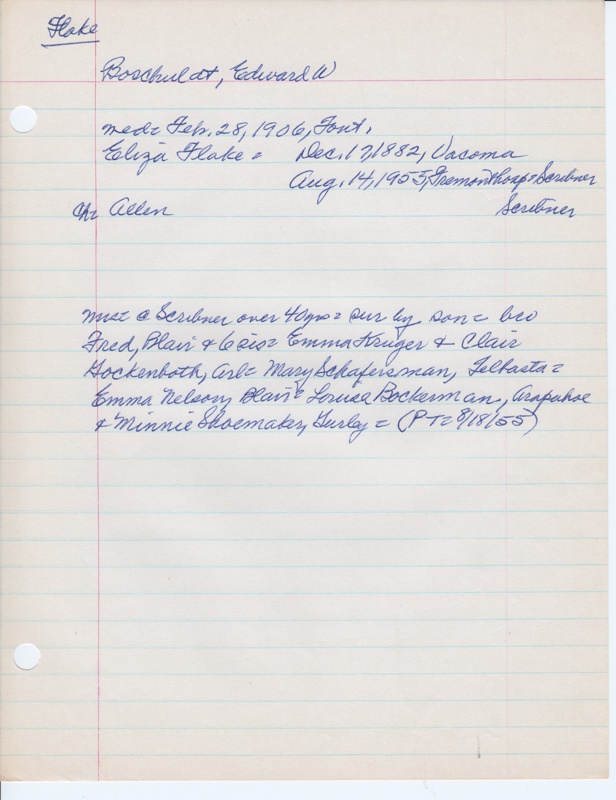 Flake
Boschuldt, Edward W
med= Feb. 28, 1906, Font.
Eliza Flake = Dec. 17, 1882, Vacoma
Aug. 14, 1955, Fremont hosp = Scribner
Scribner
Ch= Allen
mst @ Scribner over 40 yrs = sur by son = bro
Fred, Blair & 6 sis = Emma Kruger & Clair
Gockenboth, Arl = Mary Schafersman, Telbasta =
Emma Nelson, Blair = Louise Bockerman, Arapahoe
& Minnie Shoemaker, Gurley = (PT = 8/18/55)